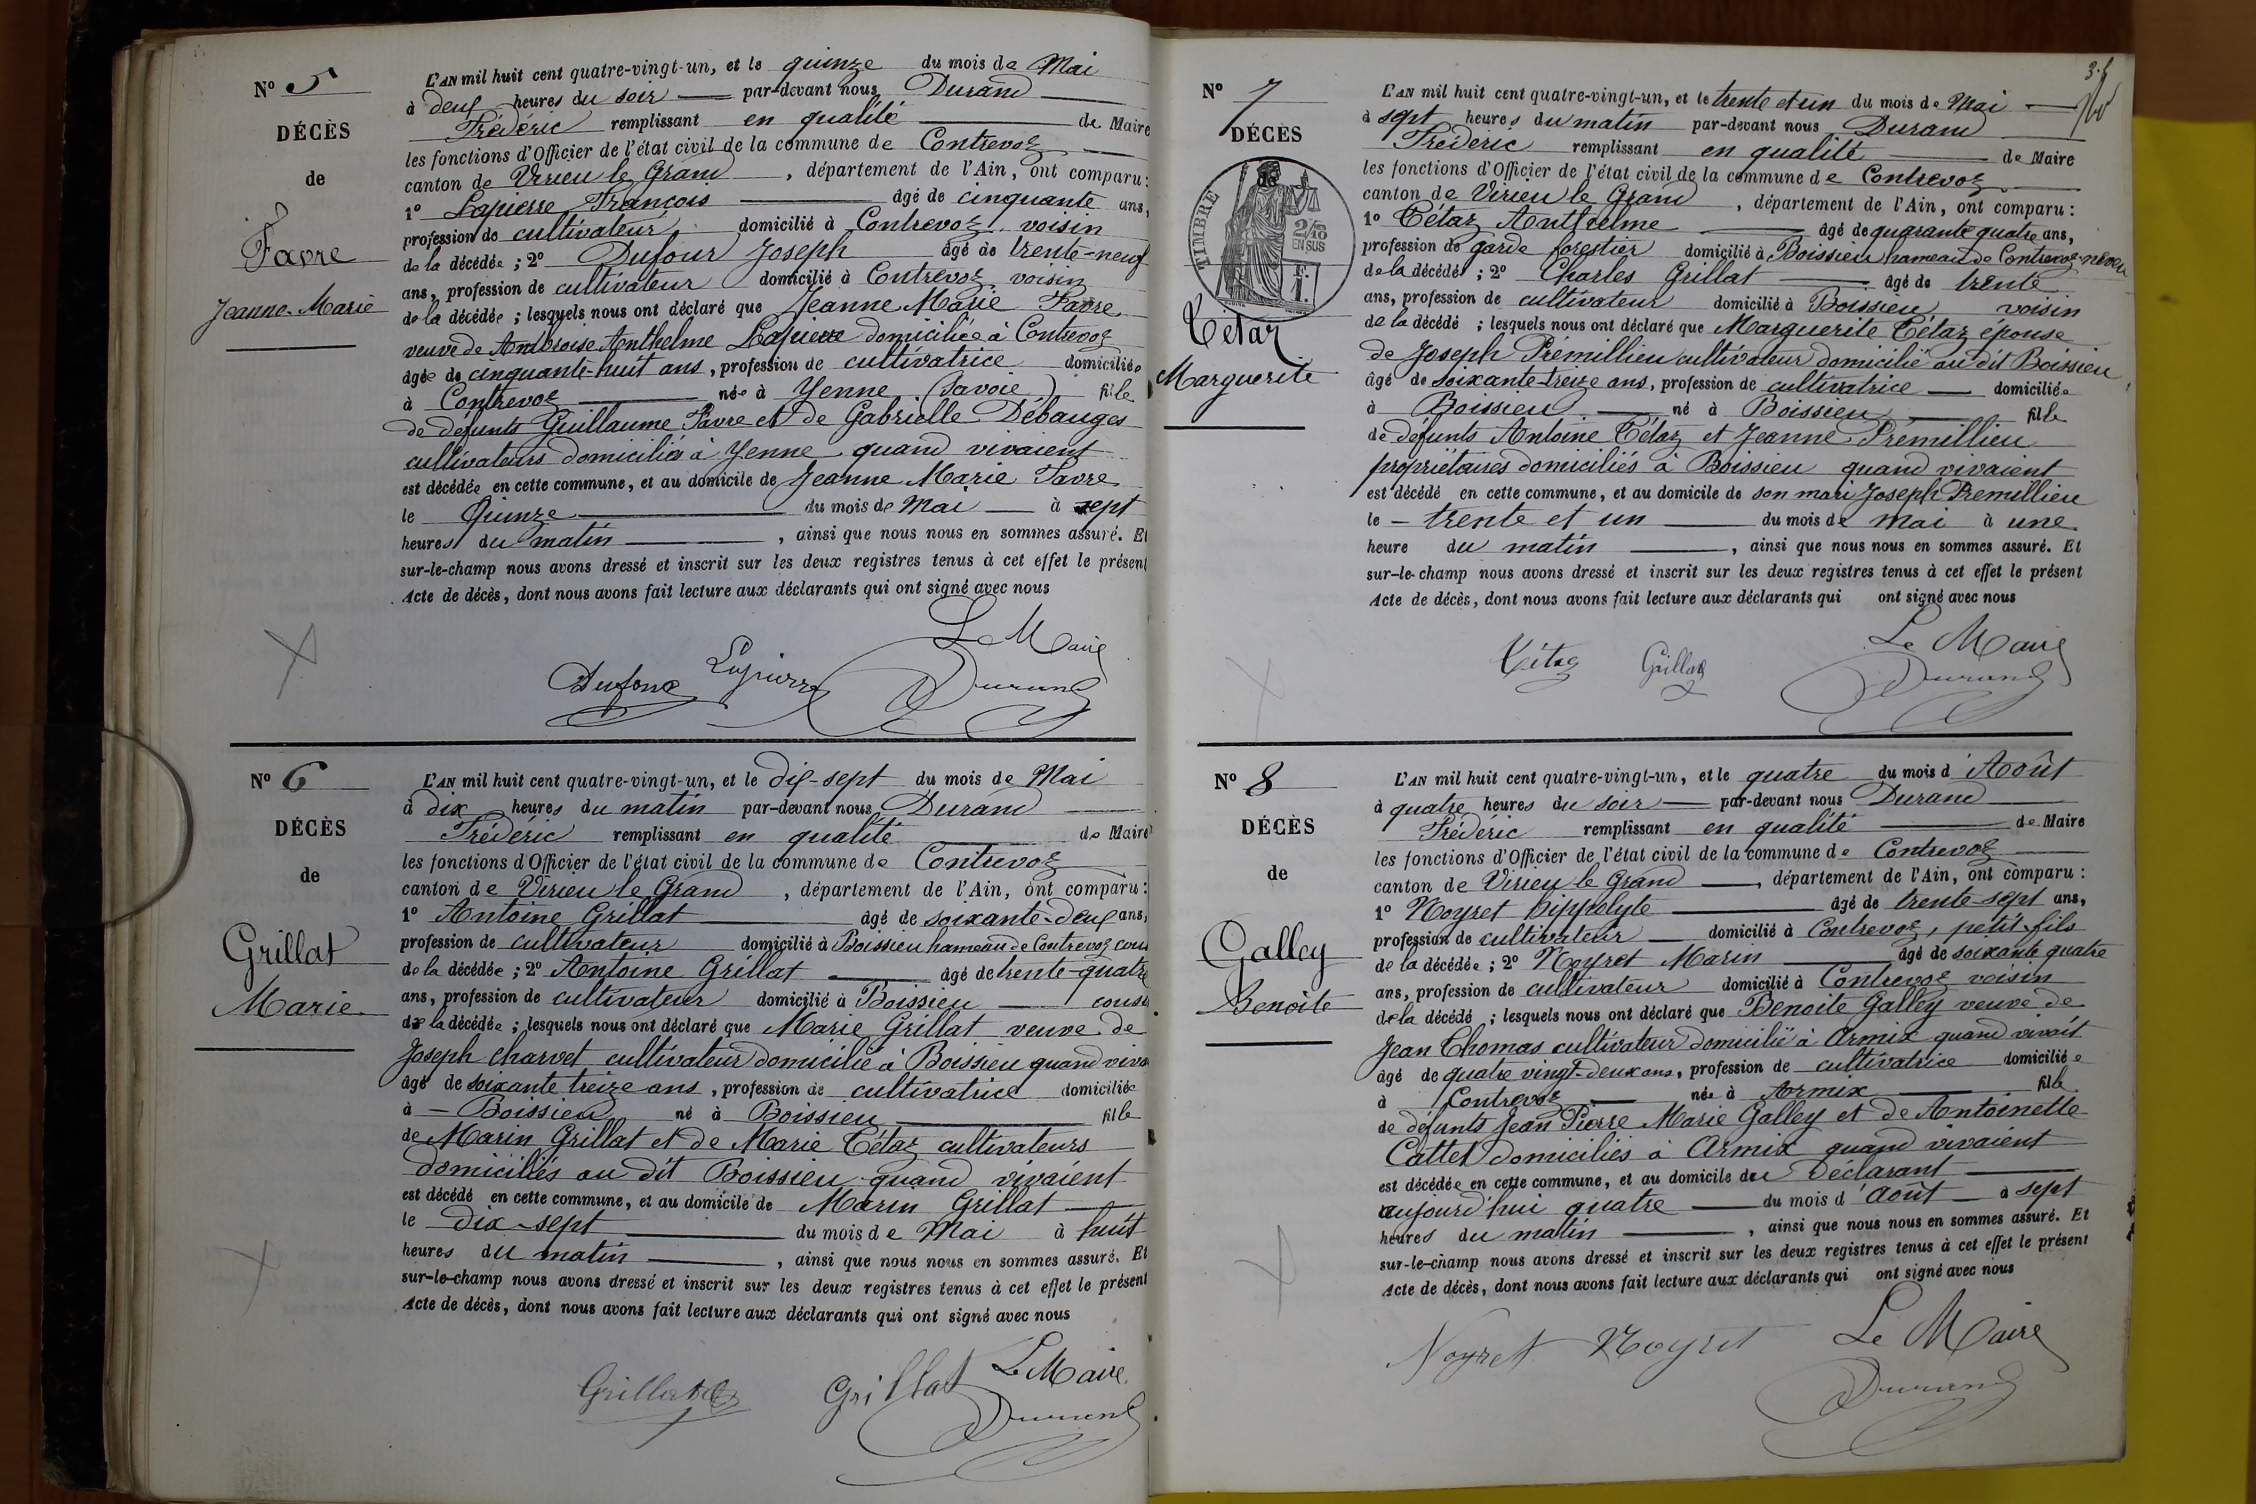 N° 5
DÉCÈS
de
Favre
Jeanne-Marie
L'AN mil huit cent quatre-vingt-un, et le quinze du mois de Mai
à deux heures du soir par-devant nous Durand
Frédéric remplissant en qualité de Maire
les fonctions d'Officier de l'état civil de la commune de Contrevoz
canton de Virieu le Grand, département de l'Ain, ont comparu :
1° Lapierre François âgé de cinquante ans,
profession de cultivateur domicilié à Contrevoz voisin
de la décédée ; 2° Dufour Joseph âgé de trente-neuf
ans, profession de cultivateur domicilié à Contrevoz voisin
de la décédée ; lesquels nous ont déclaré que Jeanne Marie Favre
veuve de Ambroise Anthelme Lapierre domiciliée à Contrevoz
âgée de cinquante-huit ans, profession de cultivatrice domiciliée
à Contrevoz née à Yenne (Savoie) fille
de défunts Guillaume Favre et de Gabrielle Débauges
cultivateurs domiciliés à Yenne quand vivaient
est décédée en cette commune, et au domicile de Jeanne Marie Favre
le Quinze du mois de Mai à sept
heures du matin, ainsi que nous nous en sommes assuré. Et
sur-le-champ nous avons dressé et inscrit sur les deux registres tenus à cet effet le présent
Acte de décès, dont nous avons fait lecture aux déclarants qui ont signé avec nous
Le Maire
Dufour Lapierre Durand
N° 6
DÉCÈS
de
Grillat
Marie
L'AN mil huit cent quatre-vingt-un, et le dix-sept du mois de Mai
à dix heures du matin par-devant nous Durand
Frédéric remplissant en qualité de Maire
les fonctions d'Officier de l'état civil de la commune de Contrevoz
canton de Virieu le Grand, département de l'Ain, ont comparu :
1° Antoine Grillat âgé de soixante-deux ans,
profession de cultivateur domicilié à Boissieu hameau de Contrevoz cou
de la décédée ; 2° Antoine Grillat âgé de trente-quatre
ans, profession de cultivateur domicilié à Boissieu cousi
de la décédée ; lesquels nous ont déclaré que Marie Grillat veuve de
Joseph Charvet cultivateur domicilié à Boissieu quand viva
âgé de soixante treize ans, profession de cultivatrice domiciliée
à Boissieu né à Boissieu fille
de Marin Grillat et de Marie Tétaz cultivateurs
domiciliés au dit Boissieu quand vivaient
est décédé en cette commune, et au domicile de Marin Grillat
le dix-sept du mois de Mai à huit
heures du matin, ainsi que nous nous en sommes assuré. Et
sur-le-champ nous avons dressé et inscrit sur les deux registres tenus à cet effet le présent
Acte de décès, dont nous avons fait lecture aux déclarants qui ont signé avec nous
Le Maire
Grillat Grillat Durand
N° 7
DÉCÈS
TIMBRE
2/10
EN SUS
Tétaz
Marguerite
L'AN mil huit cent quatre-vingt-un, et le trente et un du mois de Mai
à sept heures du matin par-devant nous Durand
Frédéric remplissant en qualité de Maire
les fonctions d'Officier de l'état civil de la commune de Contrevoz
canton de Virieu le Grand, département de l'Ain, ont comparu :
1° Tétaz Anthelme âgé de quarante quatre ans,
profession de garde forestier domicilié à Boissieu hameau de Contrevoz neveu
de la décédée ; 2° Charles Grillat âgé de trente
ans, profession de cultivateur domicilié à Boissieu voisin
de la décédé ; lesquels nous ont déclaré que Marguerite Tétaz épouse
de Joseph Prémillieu cultivateur domicilié au dit Boissieu
âgé de soixante-treize ans, profession de cultivatrice domiciliée
à Boissieu né à Boissieu fille
de défunts Antoine Tétaz et Jeanne Prémillieu
propriétaires domiciliés à Boissieu quand vivaient
est décédé en cette commune, et au domicile de son mari Joseph Premillieu
le trente et un du mois de mai à une
heure du matin, ainsi que nous nous en sommes assuré. Et
sur-le-champ nous avons dressé et inscrit sur les deux registres tenus à cet effet le présent
Acte de décès, dont nous avons fait lecture aux déclarants qui ont signé avec nous
Le Maire
Tétaz Grillat Durand
N° 8
DÉCÈS
de
Galley
Benoîte
L'AN mil huit cent quatre-vingt-un, et le quatre du mois d'Août
à quatre heures du soir par-devant nous Durand
Frédéric remplissant en qualité de Maire
les fonctions d'Officier de l'état civil de la commune de Contrevoz
canton de Virieu le Grand, département de l'Ain, ont comparu :
1° Noyret hippolyte âgé de trente-sept ans,
profession de cultivateur domicilié à Contrevoz, petit-fils
de la décédée ; 2° Noyret Marin âgé de soixante quatre
ans, profession de cultivateur domicilié à Contrevoz voisin
de la décédé ; lesquels nous ont déclaré que Benoite Galley veuve de
Jean Thomas cultivateur domicilié à Armix quand vivait
âgé de quatre vingt-deux ans, profession de cultivatrice domiciliée
à Contrevoz née à Armix fille
de défunts Jean Pierre Marie Galley et de Antoinette
Cattet domiciliés à Armix quand vivaient
est décédée en cette commune, et au domicile du Déclarant
aujourd'hui quatre du mois d'août à sept
heures du matin, ainsi que nous nous en sommes assuré. Et
sur-le-champ nous avons dressé et inscrit sur les deux registres tenus à cet effet le présent
Acte de décès, dont nous avons fait lecture aux déclarants qui ont signé avec nous
Noyret Noyret Le Maire
Durand